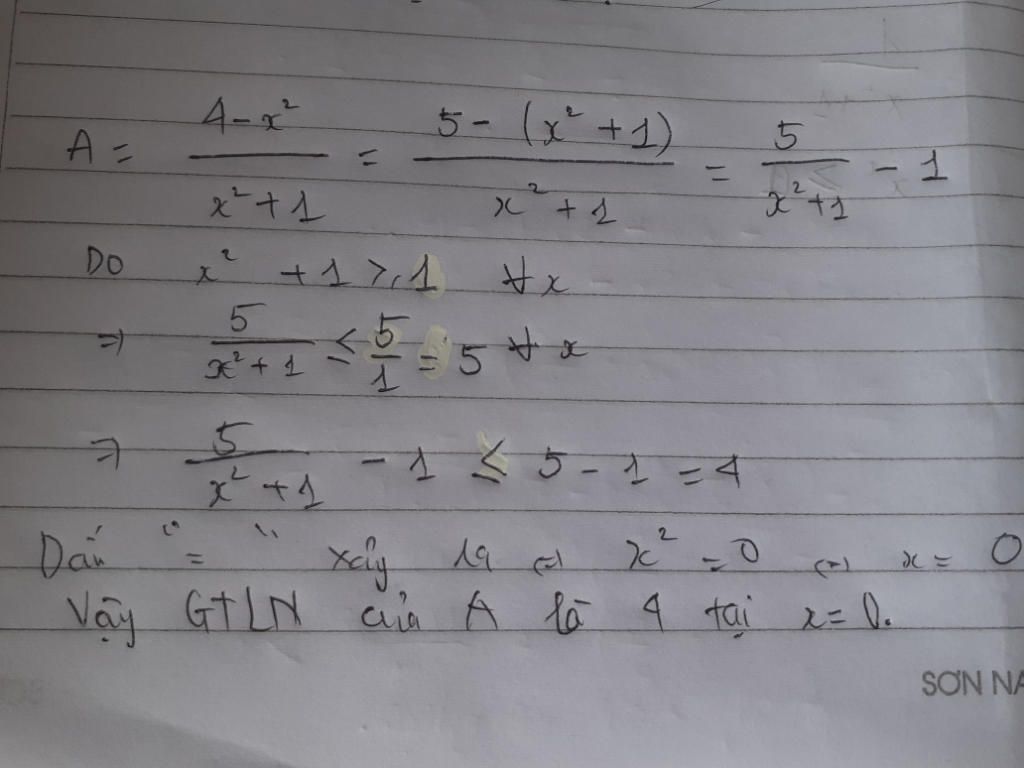 A = \frac{4 - x^2}{x^2 + 1} = \frac{5 - (x^2 + 1)}{x^2 + 1} = \frac{5}{x^2 + 1} - 1
Do x^2 + 1 ≥ 1 ∀ x
⇒ \frac{5}{x^2 + 1} ≤ \frac{5}{1} = 5 ∀ x
⇒ \frac{5}{x^2 + 1} - 1 ≤ 5 - 1 = 4
Dấu "=" xảy ra ⇔ x^2 = 0 ⇔ x = 0
Vậy GTLN của A là 4 tại x = 0.
SƠN NA